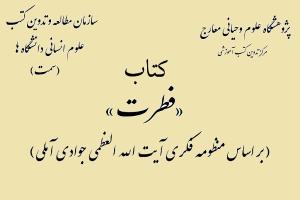 پژوهشگاه علوم وحیانی معارج
مرکز تدوین کتب آموزشی
سازمان مطالعه و تدوین کتب
علوم انسانی دانشگاه ها
(سمت)
کتاب
«فطرت»
(بر اساس منظومه فکری آیت الله العظمی جوادی آملی)